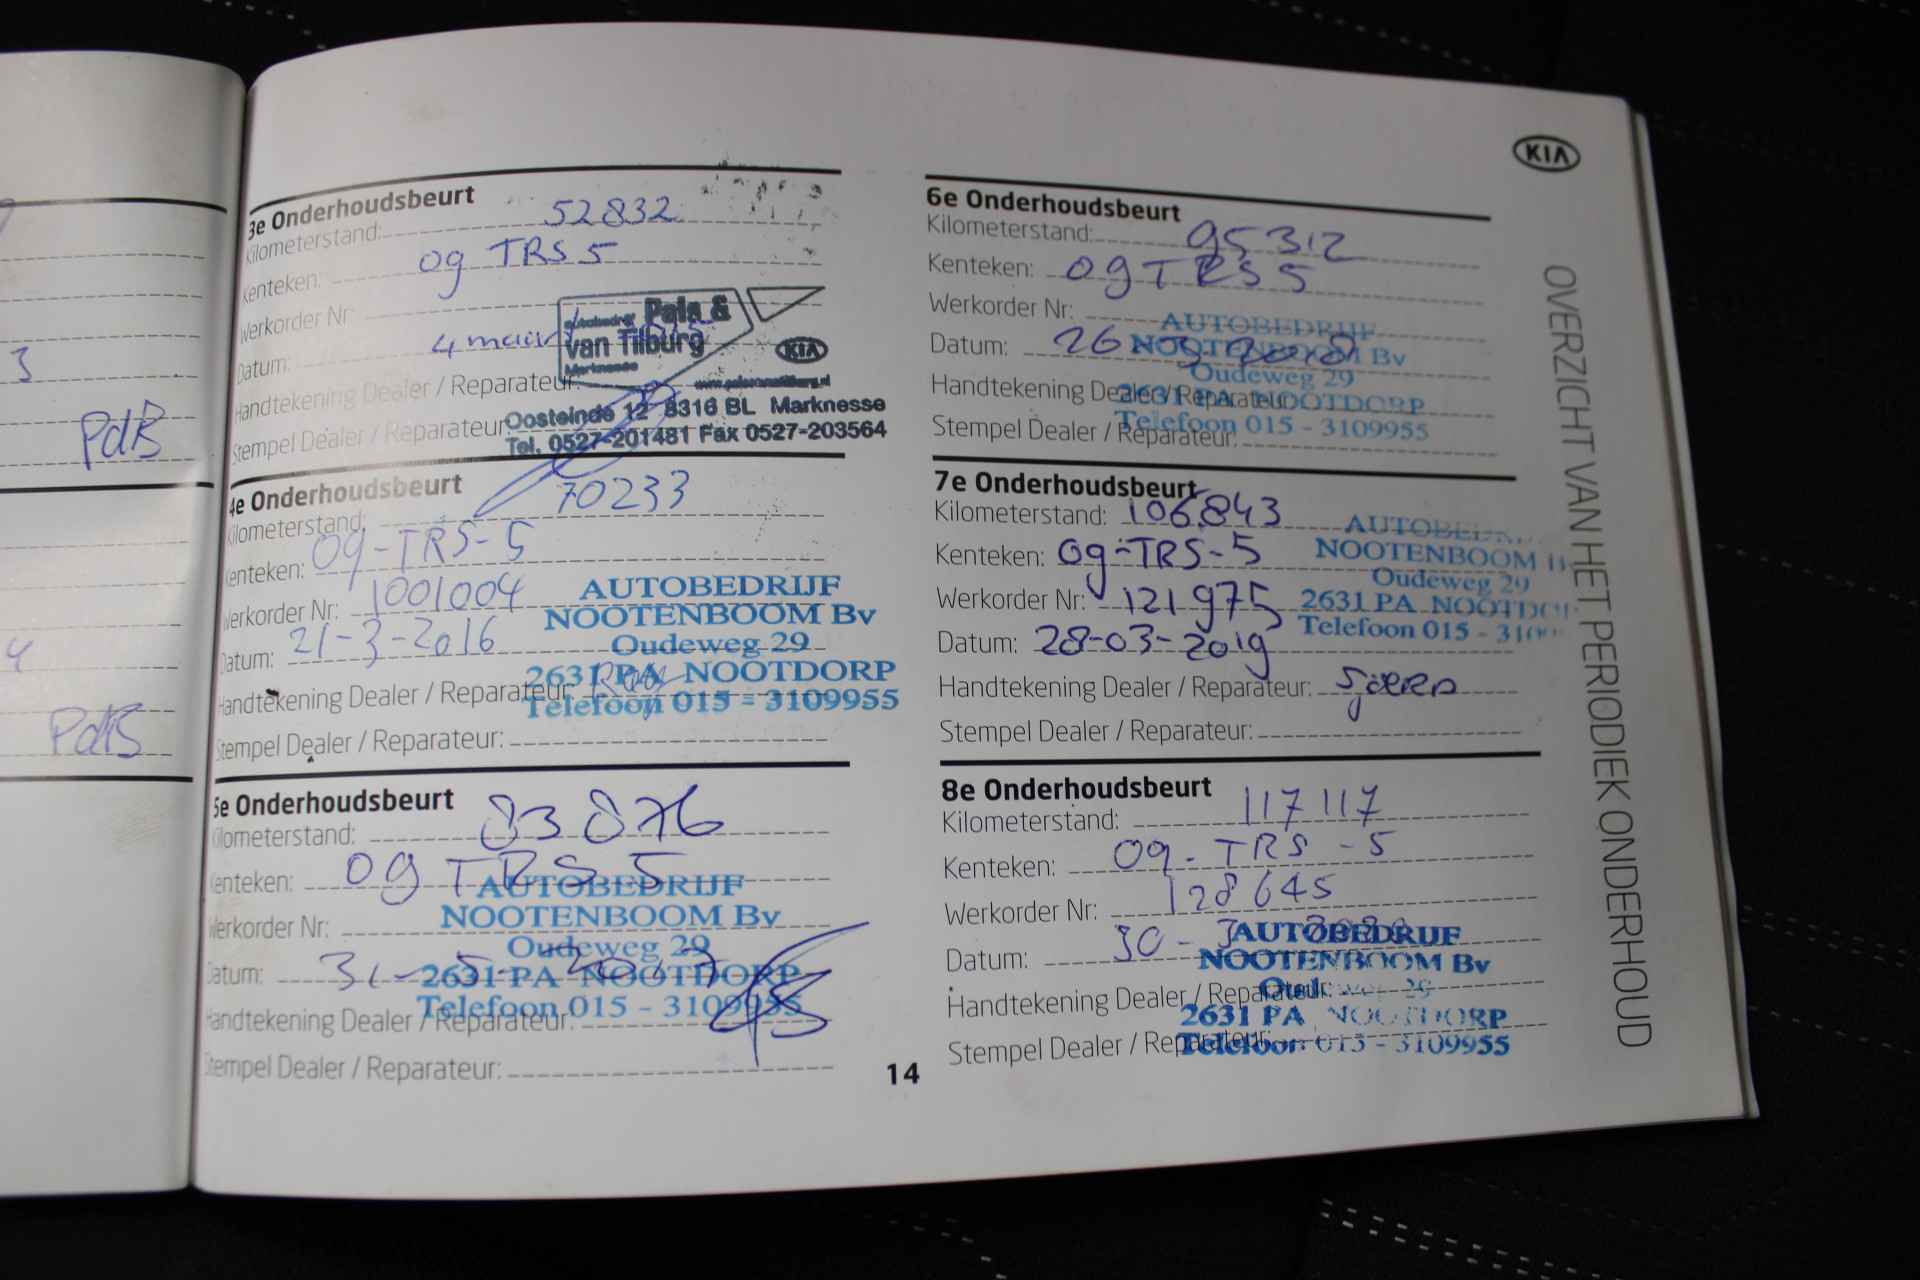 3
PdB
4
PdB
3e Onderhoudsbeurt
Kilometerstand: 52832
Kenteken: 09 TRS 5
Werkorder Nr:
Datum: 4 maart
Handtekening Dealer / Reparateur:
Stempel Dealer / Reparateur:
autobedrijf Pals &
van Tilburg
Marknesse
KIA
Oosteinde 12 8316 BL Marknesse
Tel. 0527-201481 Fax 0527-203564
4e Onderhoudsbeurt
Kilometerstand: 70233
Kenteken: 09-TRS-5
Werkorder Nr: 1001004
Datum: 21-3-2016
Handtekening Dealer / Reparateur:
Stempel Dealer / Reparateur:
AUTOBEDRIJF
NOOTENBOOM Bv
Oudeweg 29
2631 PA NOOTDORP
Telefoon 015 - 3109955
5e Onderhoudsbeurt
Kilometerstand: 83876
Kenteken: 09 TRS 5
Werkorder Nr:
Datum: 31-5-2017
Handtekening Dealer / Reparateur:
Stempel Dealer / Reparateur:
AUTOBEDRIJF
NOOTENBOOM Bv
Oudeweg 29
2631 PA NOOTDORP
Telefoon 015 - 3109955
14
KIA
6e Onderhoudsbeurt
Kilometerstand: 95312
Kenteken: 09 TRS 5
Werkorder Nr:
Datum: 26 3 2018
Handtekening Dealer / Reparateur:
Stempel Dealer / Reparateur:
AUTOBEDRIJF
NOOTENBOOM Bv
Oudeweg 29
2631 PA NOOTDORP
Telefoon 015 - 3109955
7e Onderhoudsbeurt
Kilometerstand: 106.843
Kenteken: 09-TRS-5
Werkorder Nr: 121975
Datum: 28-03-2019
Handtekening Dealer / Reparateur: Sjoerd
Stempel Dealer / Reparateur:
AUTOBEDRIJF
NOOTENBOOM
Oudeweg 29
2631 PA NOOTDORP
Telefoon 015 - 310
8e Onderhoudsbeurt
Kilometerstand: 117117
Kenteken: 09-TRS-5
Werkorder Nr: 128645
Datum: 30-3-2020
Handtekening Dealer / Reparateur:
Stempel Dealer / Reparateur:
AUTOBEDRIJF
NOOTENBOOM Bv
Oudeweg 29
2631 PA NOOTDORP
Telefoon 015 - 3109955
OVERZICHT VAN HET PERIODIEK ONDERHOUD